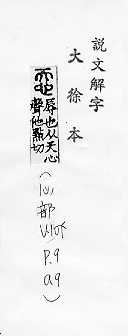 說文解字
大徐本
辱也从天心
聲聲他點切
(心部
P.9
a9)